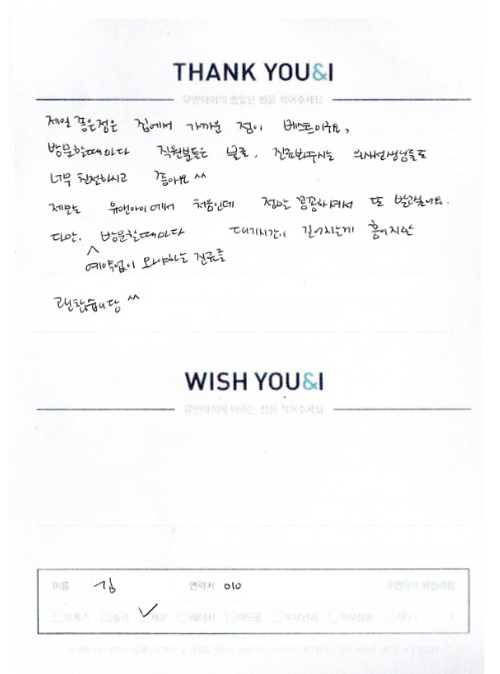 THANK YOU&I
유앤아이의 좋았던 점을 적어주세요
제일 좋은점은 집에서 가까운 점이 베스트이구요,
방문할때마다 직원분들은 물론, 진료봐주시는 의사선생님들도
너무 친절하시고 좋아요 ^^
제모는 유앤아이에서 처음인데 정말 꼼꼼하셔서 또 받고싶어요.
다만, 방문할때마다 대기시간이 길어지는게 흠이지만
예약없이 와야하는 진료를
괜찮습니당 ^^
WISH YOU&I
유앤아이에 바라는 점을 적어주세요
이름 김 연락처 010
보톡스 필러 제모 레이저 여드름 피부관리 기타 ( )